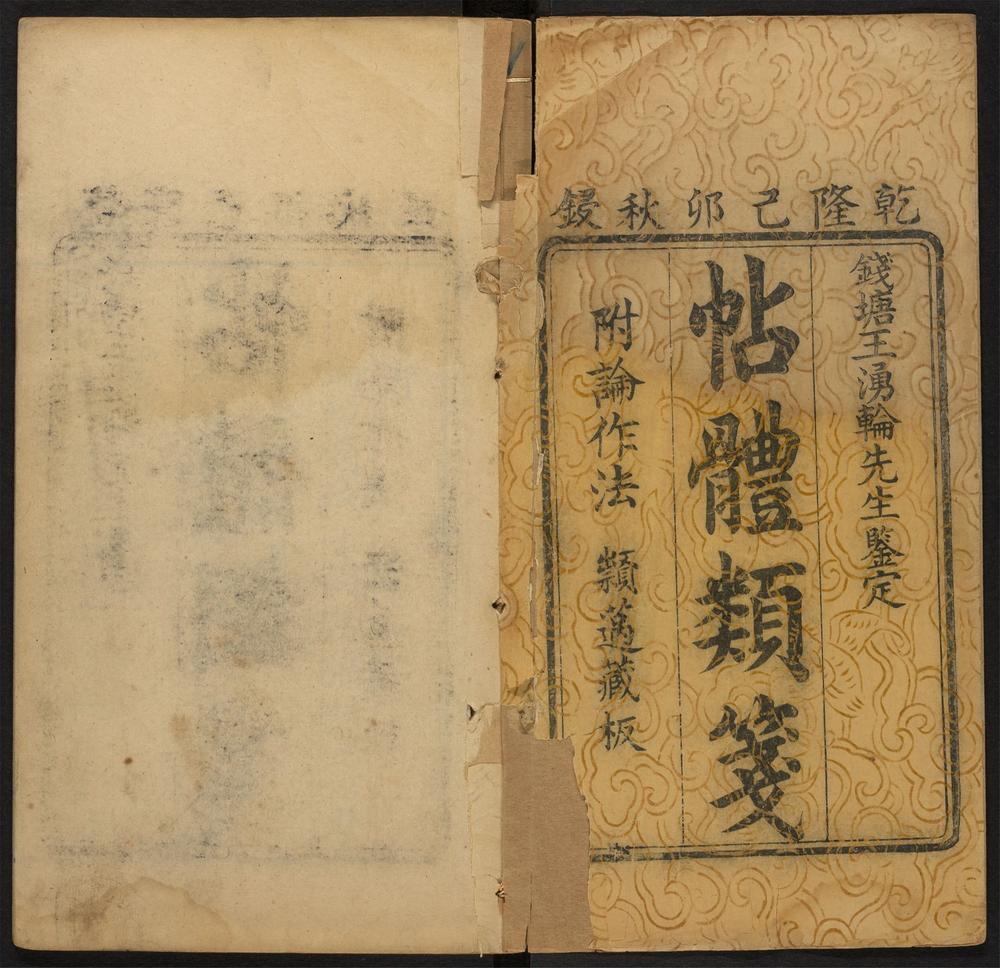 乾隆己卯秋鋟
錢塘王湧輪先生鑒定
帖體類箋
附論作法　纇薖藏板